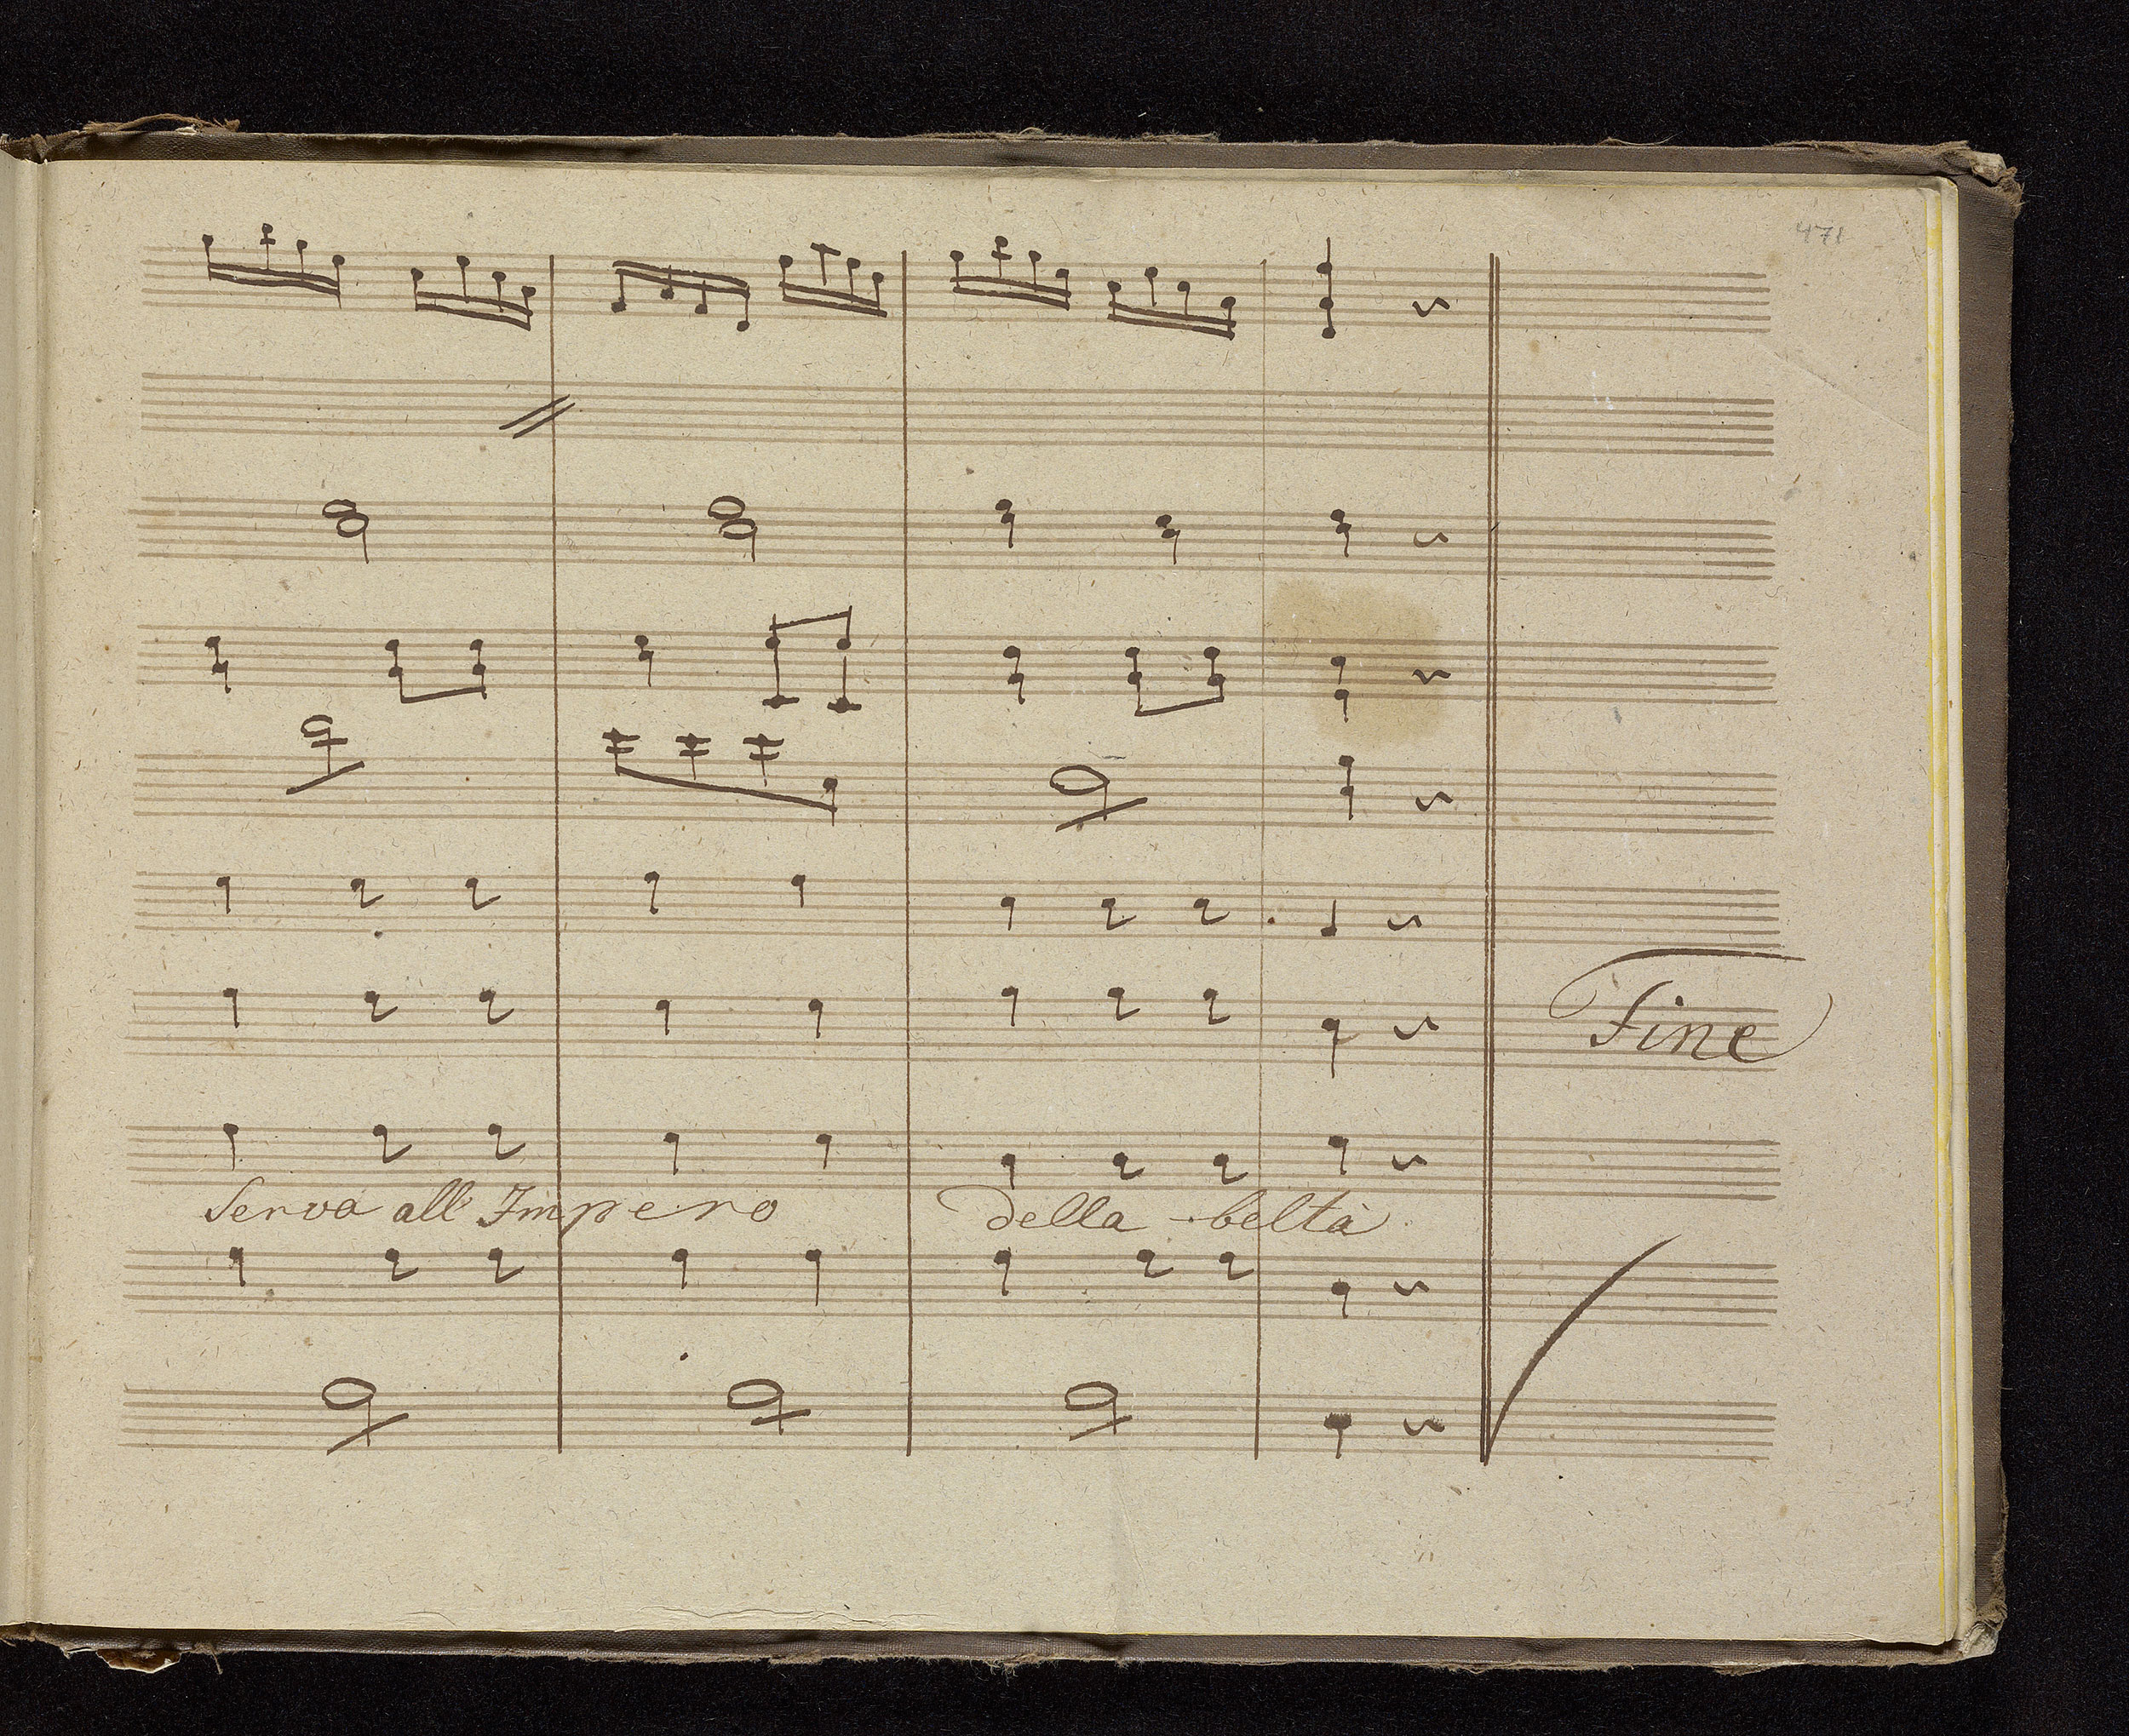 471
Fine
Serva all' Impero della beltà